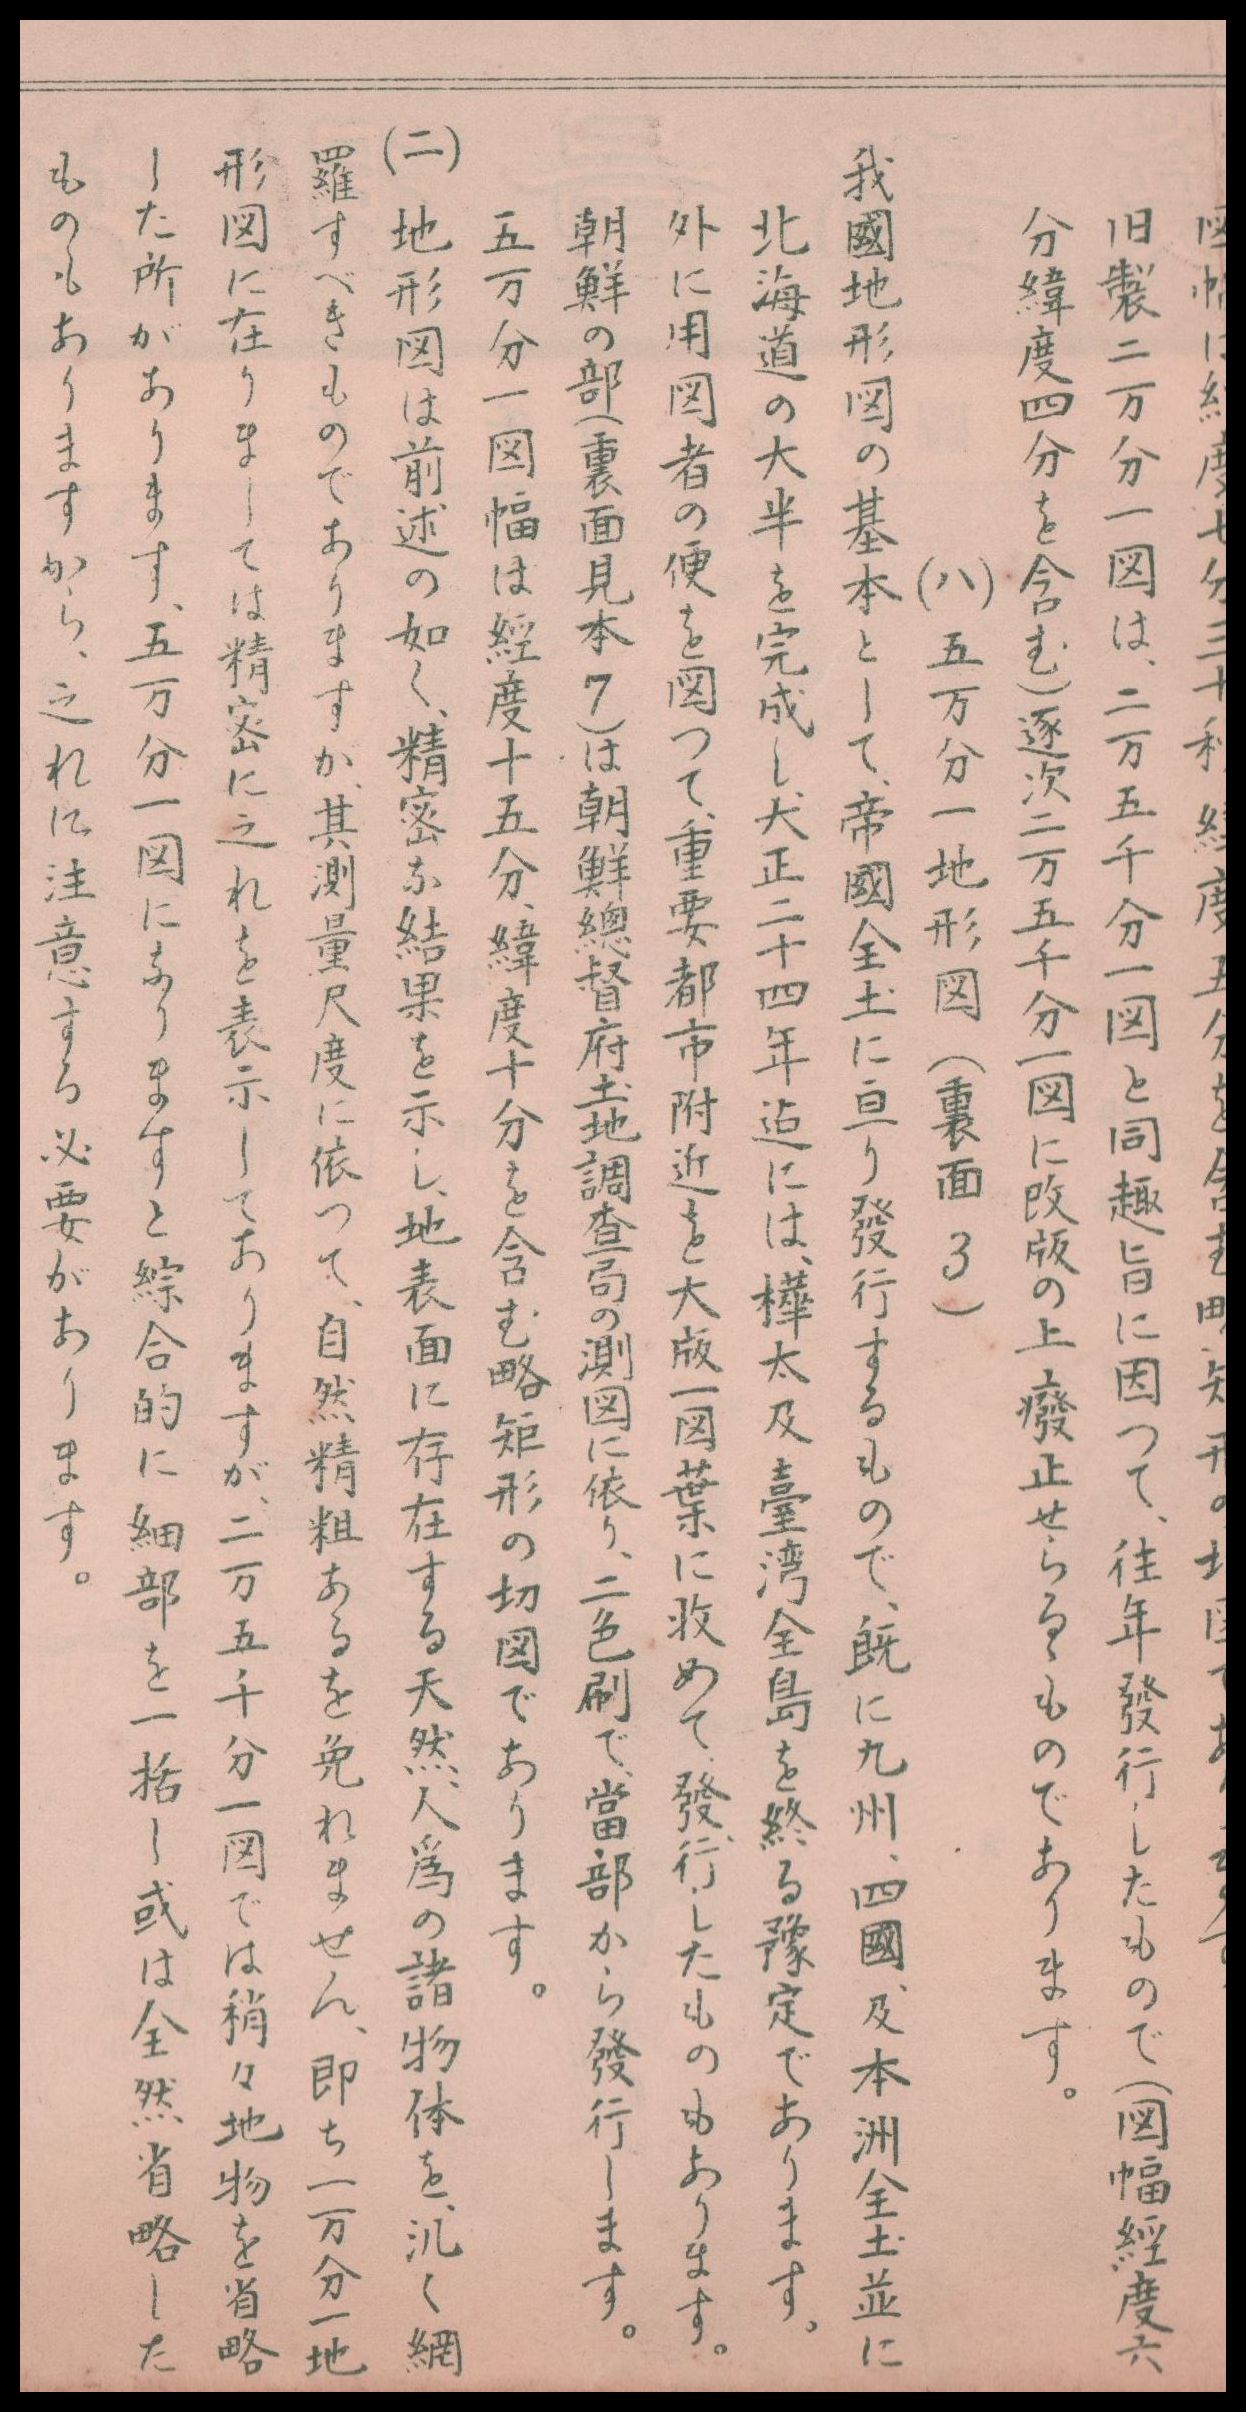 旧製二万分一図は、二万五千分一図と同趣旨に因つて、往年發行したもので(図幅經度六
分緯度四分を含む)逐次二万五千分一図に改版の上癈止せらるゝものであります。
(八) 五万分一地形図 (裏面 3)
我國地形図の基本として、帝國全土に亘り發行するもので、既に九州、四國、及本洲全土並に
北海道の大半を完成し、大正二十四年迠には、樺太及臺湾全島を終る豫定であります。
外に用図者の便を図つて、重要都市附近を大版一図葉に收めて、發行したものもあります。
朝鮮の部(裏面見本7)は朝鮮總督府土地調査局の測図に依り、二色刷で、當部から發行します。
五万分一図幅は經度十五分、緯度十分を含む略矩形の切図であります。
(二) 地形図は前述の如く、精密な結果を示し、地表面に存在する天然、人爲の諸物体を、汎く網
羅すべきものでありますが、其測量尺度に依つて、自然精粗あるを免れません、即ち一万分一地
形図に在りましては精密に之れを表示してありますが、二万五千分一図では稍々地物を省略
した所があります、五万分一図になりますと綜合的に細部を一括し或は全然省略した
ものもありますから、之れに注意する必要があります。